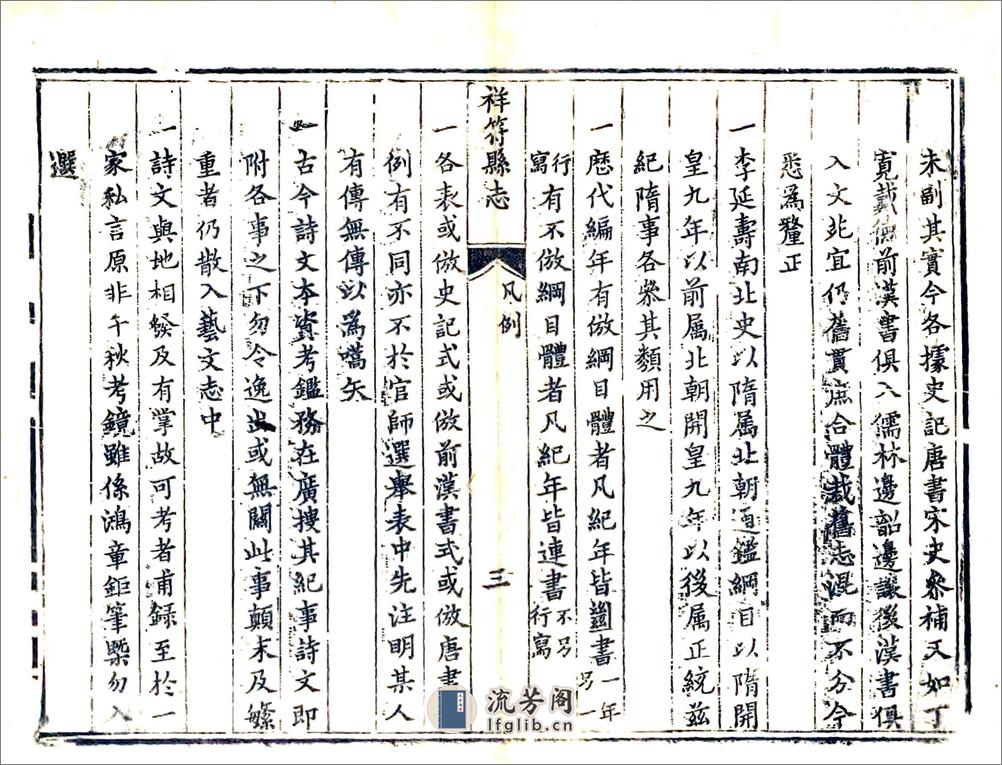 未副其實今各據史記唐書宋史叅補又如丁
寬戴德前漢書俱入儒林邊韶邊讓後漢書俱
入文苑宜仍舊貫庶合體裁舊志混而不分今
悉爲釐正
一李延壽南北史以隋属北朝通鑑綱目以隋開
皇九年以前属北朝開皇九年以後属正統茲
紀隋事各㕘其類用之
一歷代編年有倣綱目體者凡紀年皆啚書一年另一
行寫有不倣綱目體者凡紀年皆連書不另行寫
祥符縣志
凡例
三
一各表或倣史記式或倣前漢書式或倣唐書
例有不同亦不於官師選舉表中先注明某人
有傳無傳以爲嚆矢
一古今詩文本資考鑑務在廣搜其紀事詩文即
附各事之下勿令逸出或無關此事顛末及繁
重者仍散入藝文志中
一詩文與地相發及有掌故可考者甫録至於一
家私言原非千秋考鏡雖係鴻章鉅筆槩勿入
選
流芳阁
lfglib.cn